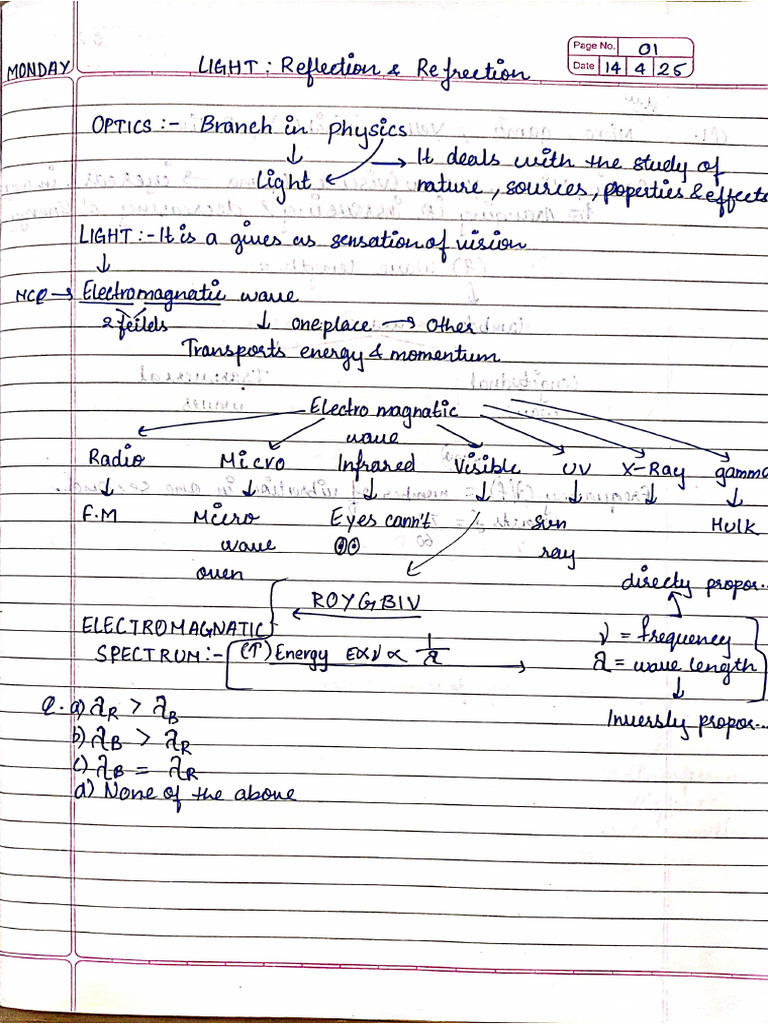 MONDAY
LIGHT : Reflection & Refrection
Page No. 01
Date 14 4 25
OPTICS :- Branch in Physics
↓ → It deals with the study of
Light nature, sources, poperties & effects
LIGHT :- It is a gives as sensation of vision
↓
MCQ → Electromagnetic wave
2 feilels ↓ one place → Other
Transports energy & momentum
Electro magnatic
wave
Radio Micro Infrared Visible UV X-Ray gamma
↓ ↓ ↓ ↓ ↓ ↓ ↓
F.M Micro Eyes cann't Sun Hulk
wave ray
oven
directly propor...
ROYGBIV
ELECTROMAGNATIC
SPECTRUM :- (↑) Energy E∝ν∝ 1/λ → ν = frequency
λ = wave length
↓
Inversly propor...
Q. a) λR > λB
b) λB > λR
c) λB = λR
d) None of the above